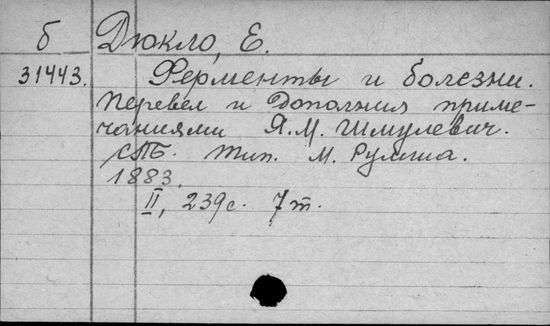 б Дюкло, Е.
31443. Ферменты и болезни.
Перевел и дополнил приме-
чаниями Я.М. Шмулевич.
СПБ. тип. М. Румша.
1883.
II, 239с. 7т.